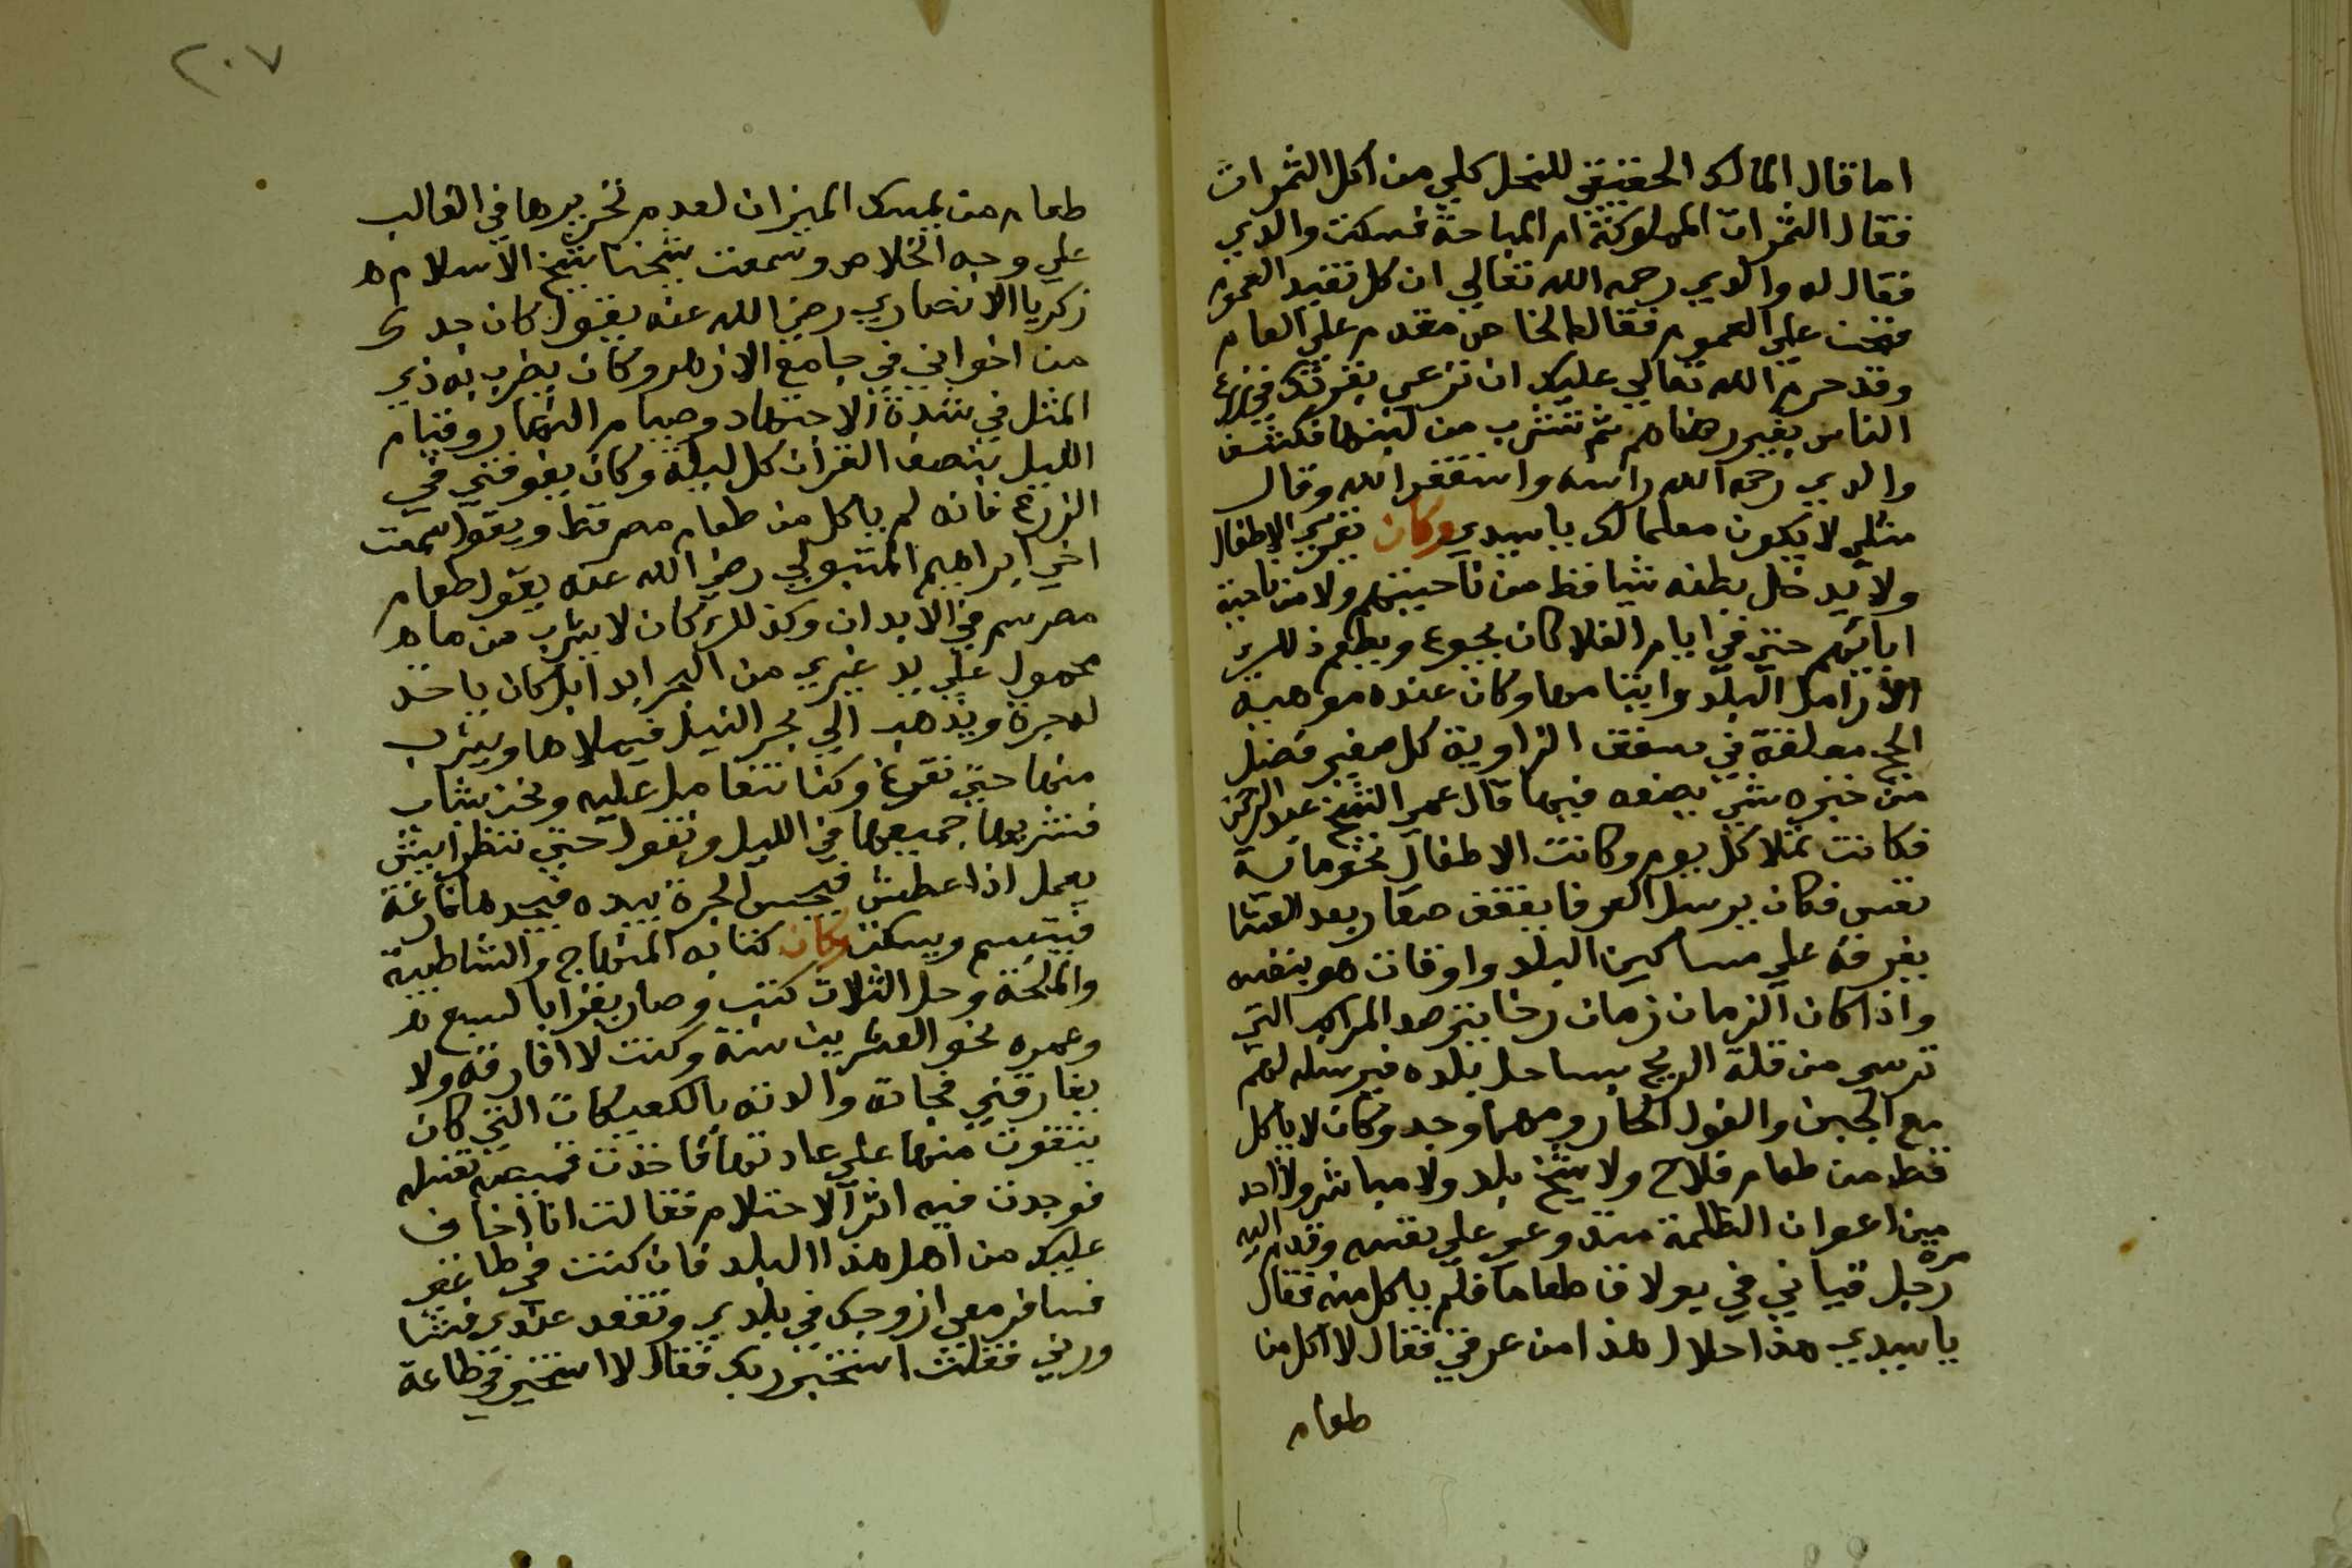 اما قال المالك الحقيقي للنحل كلي من اكل الثمرات
فقال الثمرات المملوكة ام المباحة فسكت والدي
فقال له والدي رحمه الله تعالي ان كل تفيد العموم
علي العموم فقال الخاص مقدم علي العام
وقد حرم الله تعالي عليك ان ترعي بقرتك في زرع
الناس بغير رضاهم ثم تشرب من لبنها فكشف
والدي رحمه الله راسه واستغفر الله وقال
مثلي لا يكون معلما لك يا سيدي وكان يقري الاطفال
ولا يدخل بطنه شيا قط من ناحيتهم ولا من ناحية
ابائهم حتي في ايام الغلا كان يجوع ويطعم ذلك
الارامل البلد وايتامها وكان عنده موهبة
الحج معلقة في سقف الزاوية كل صغير فضل
من خبزه شي يضعه فيها قال عمي الشيخ عبد الرحمن
فكانت تملا كل يوم وكانت الاطفال نحو ماية
نفس فكان يرسل العرفا بقفف صغار بعد العشا
يفرقه علي مساكين البلد واوقات هو بنفسه
واذا كان الزمان زمان رخا يترصد المراكب التي
ترسي من قلة الريح بساحل بلده فيرسله لهم
مع الجبن والفول الحار ومهما وجد وكان لا ياكل
قط من طعام فلاح ولا شيخ بلد ولا مباشر ولا احد
من اعوان الظلمة منذ وعي علي نفسه وقدم اليه
مرة
رجل قباني في بولاق طعاما فلم ياكل منه فقال
يا سيدي هذا حلال هذا من عرقي فقال لا اكل من
طعام
٢٠٧
طعام من يمسك الميزان لعدم تحريرها في الغالب
علي وجه الخلاص وسمعت شيخنا شيخ الاسلام
زكريا الانصاري رضي الله عنه يقول كان جدك
من اخواني في جامع الازهر وكان يضرب به وبي
المثل في شدة الاجتهاد وصيام النهار وقيام
الليل بنصف القران كل ليلة وكان يفوقني في
الورع فانه لم ياكل من طعام مصر قط ويقول سمعت
اخي ابراهيم المتبولي رضي الله عنه يقول طعام
مصر سم في الابدان وكذلك كان لا يشرب من ماء
محمول علي يد غيري من البحر ابدا بل كان ياخذ
له جرة ويذهب الي بحر النيل فيملاها ويشرب
منها حتي تفرغ وكنا نتغامل عليه ونحن شباب
فنشربها جميعها في الليل ونقول حتي ننظر ايش
يعمل اذا عطش فيجس الجرة بيده فيجدها فارغة
فيتبسم ويسكت وكان كتابه المنهاج والشاطبية
والملحة وحل الثلاث كتب وصار يقرا بالسبع
وعمره نحو العشرين سنة وكنت لا افارقه ولا
يفارقني فجاته والدته بالكعيكات التي كان
يتقوت منها علي عادتها فاخذت قميصه تغسله
فوجدت فيه اثر الاحتلام فقالت انا اخاف
عليك من اهل هذا البلد فان كنت في طاعتي
فسافر معي ازوجك في بلدي وتقعد عندي
فقلت استخير ربك فقال لا استخير في طاعة